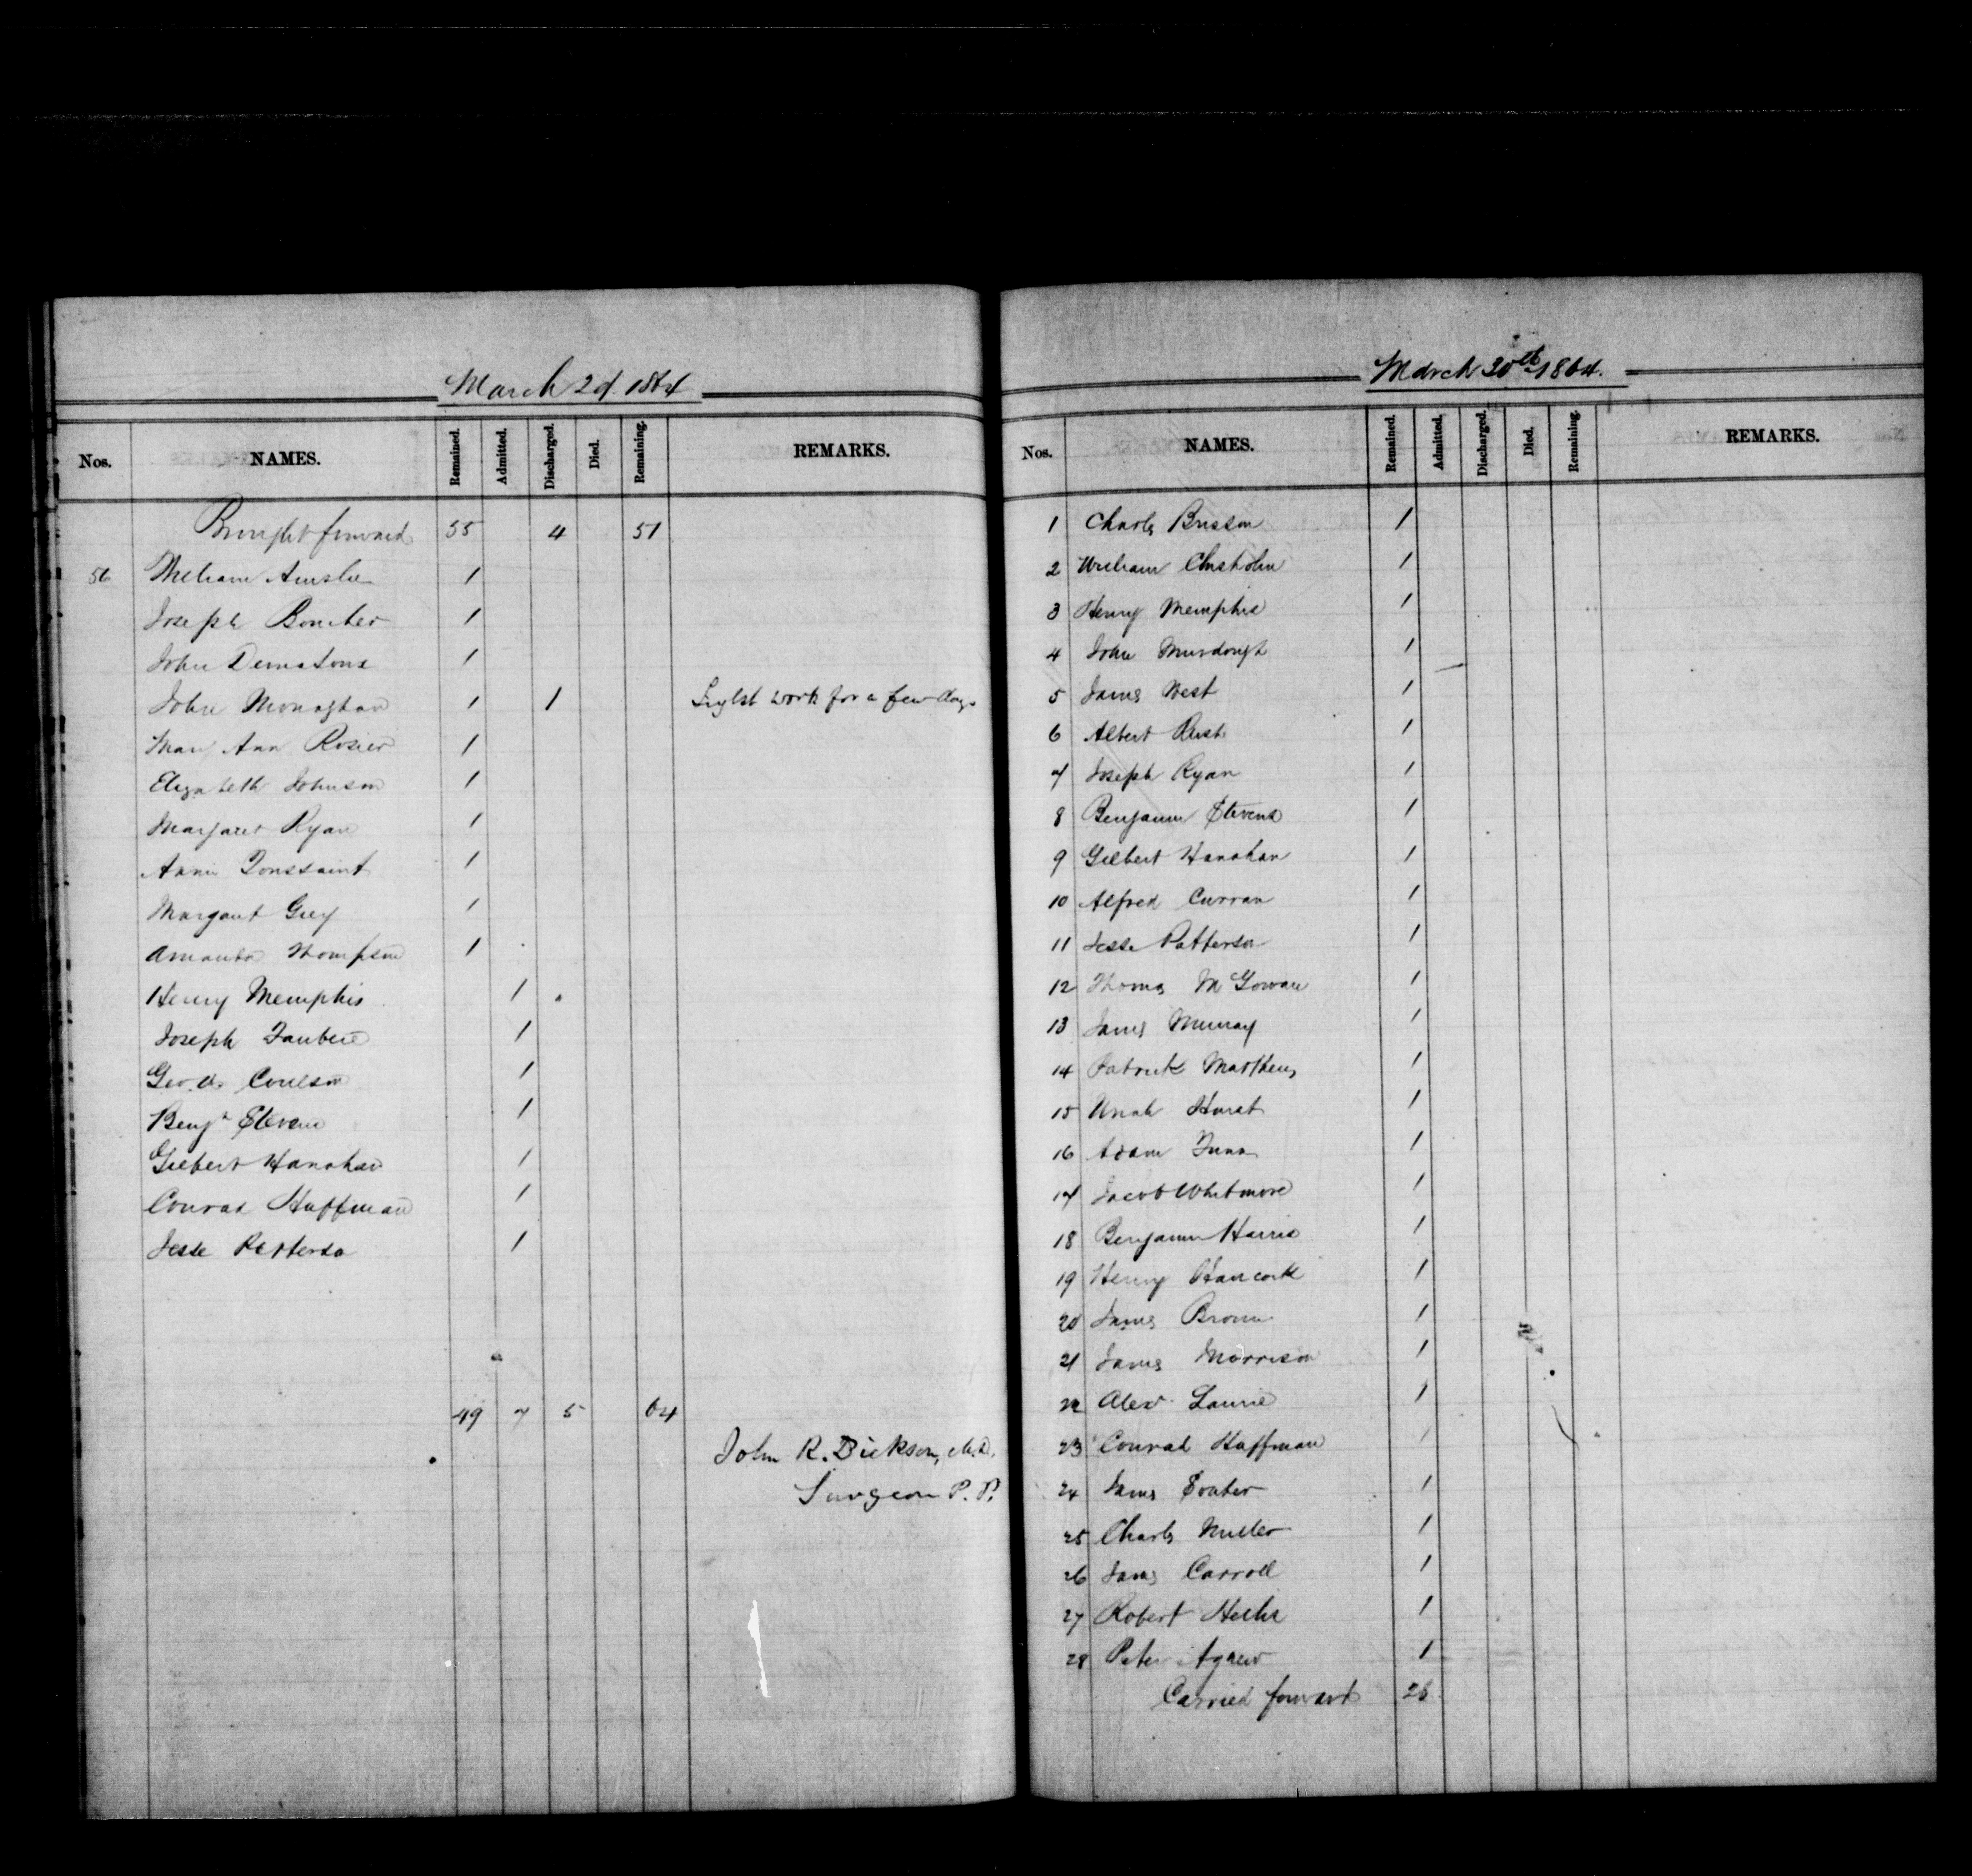 March 2d. 1864
Nos. NAMES. Remained. Admitted. Discharged. Died. Remaining. REMARKS.
Brought forward 55 4 51
56 William Ainslie 1
Joseph Boucher 1
John 1
John Monaghan 1 1 Light work for a few days
Mary Ann Rosier 1
Elizabeth Johnson 1
Margaret Ryan 1
Annie Toussaint 1
Margaret Grey 1
Amanda Thompson 1
Henry Memphis 1
Joseph 1
Geo. A. Coulson 1
Benjn Stevens 1
Gilbert Hanahan 1
Conrad Huffman 1
Jesse Patterson 1
49 7 5 64
John R. Dickson, M.D.
Surgeon P. P.
March 30th 1864.
Nos. NAMES. Remained. Admitted. Discharged. Died. Remaining. REMARKS.
1 Charles Brisson 1
2 William Chisholm 1
3 Henry Memphis 1
4 John Murdough 1
5 James West 1
6 Albert Rust 1
7 Joseph Ryan 1
8 Benjamin Stevens 1
9 Gilbert Hanahan 1
10 Alfred Curran 1
11 Jesse Patterson 1
12 Thomas McGowan 1
13 James Murray 1
14 Patrick Matthews 1
15 Uriah Hurst 1
16 Adam 1
17 Jacob Whitmore 1
18 Benjamin Harris 1
19 Henry Hancock 1
20 James Brown 1
21 James Morrison 1
22 Alexr Laurie 1
23 Conrad Huffman 1
24 James Souter 1
25 Charles Miller 1
26 James Carroll 1
27 Robert 1
28 Peter Agnew 1
Carried forward 28